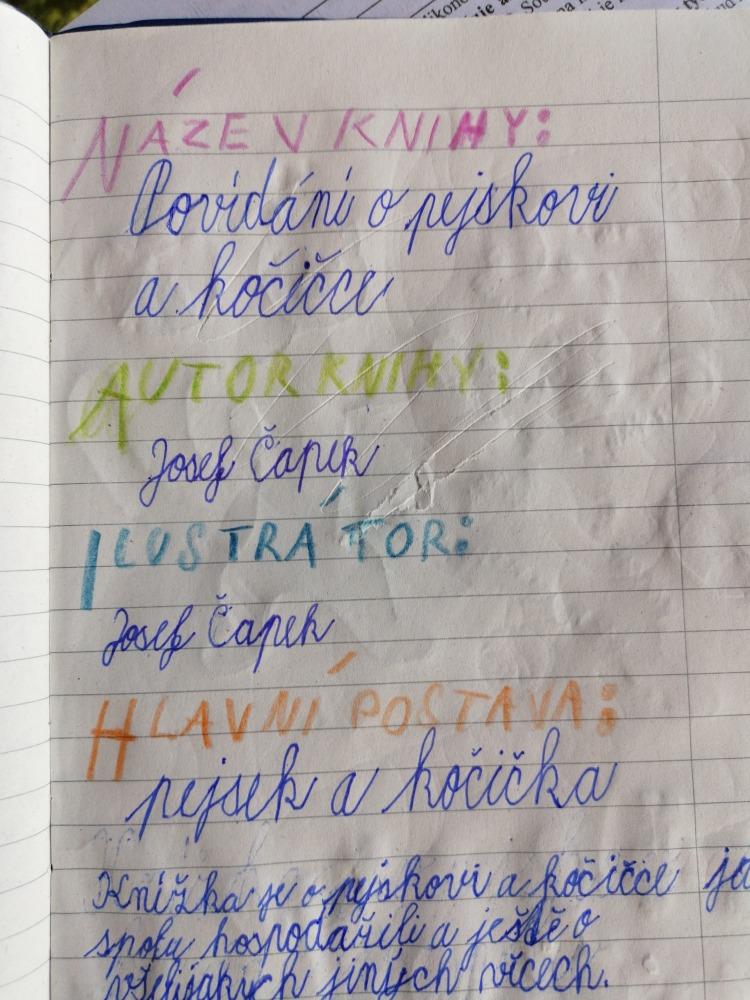 NÁZEV KNIHY:
Povídání o pejskovi
a kočičce
AUTOR KNIHY:
Josef Čapek
ILUSTRÁTOR:
Josef Čapek
HLAVNÍ POSTAVA:
pejsek a kočička
Knížka je o pejskovi a kočičce
spolu hospodařili a ještě o
všelijakých jiných věcech.